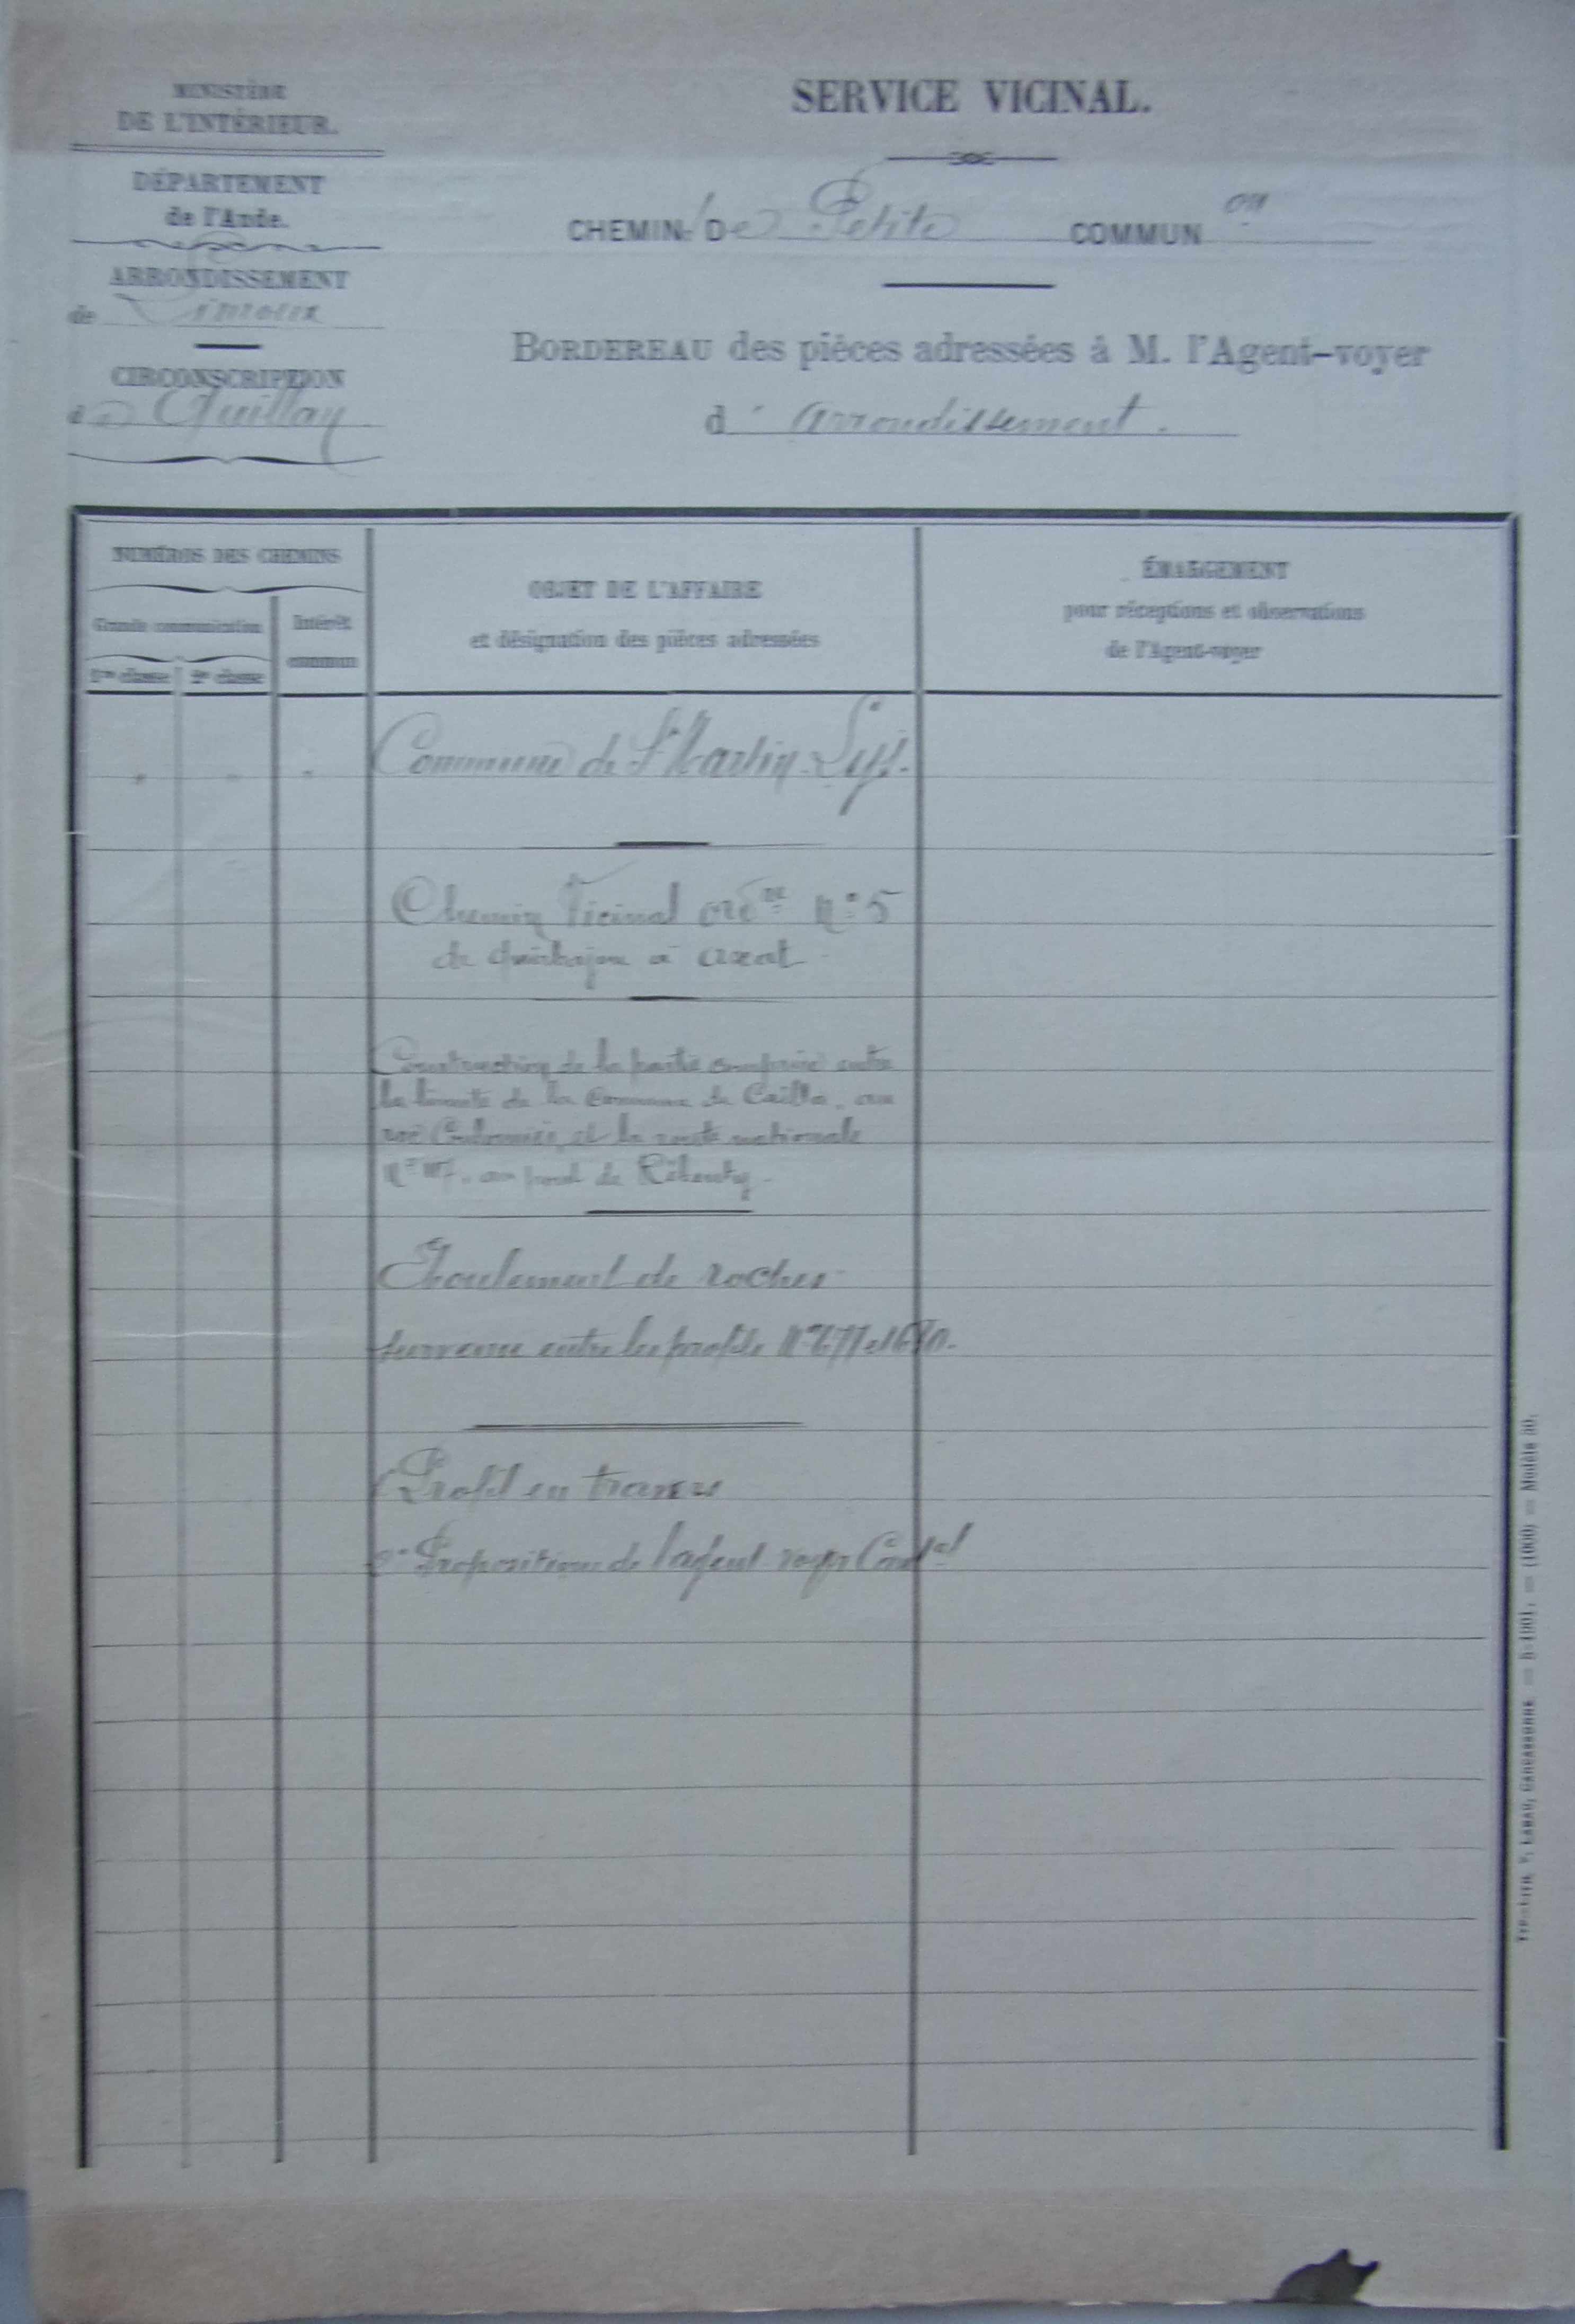 MINISTÈRE
DE L'INTÉRIEUR.
DÉPARTEMENT
de l'Aude.
ARRONDISSEMENT
de Limoux
CIRCONSCRIPTION
de Quillan
SERVICE VICINAL.
CHEMIN DE Petite COMMUNon
BORDEREAU des pièces adressées à M. l'Agent-voyer
d'arrondissement.
NUMÉROS DES CHEMINS
Grande communication
1re classe 2e classe
Intérêt
commun
OBJET DE L'AFFAIRE
et désignation des pièces adressées
ÉMARGEMENT
pour réceptions et observations
de l'Agent-voyer
Commune de St Martin-Lys.
Chemin Vicinal ordre N° 5
de Quirbajou à Axat
Construction de la partie comprise entre
la limite de la Commune de Cailla, au
et la route nationale
N° 117, au pont de Rébenty.
Eboulement de roches
survenu entre les profils N°
Profil en travers
2° Propositions de l'agent voyer Cantal
TYP.-LITH. V. LABAU, CARCASSONNE — 5-1901. — (1000) — Modèle 30.